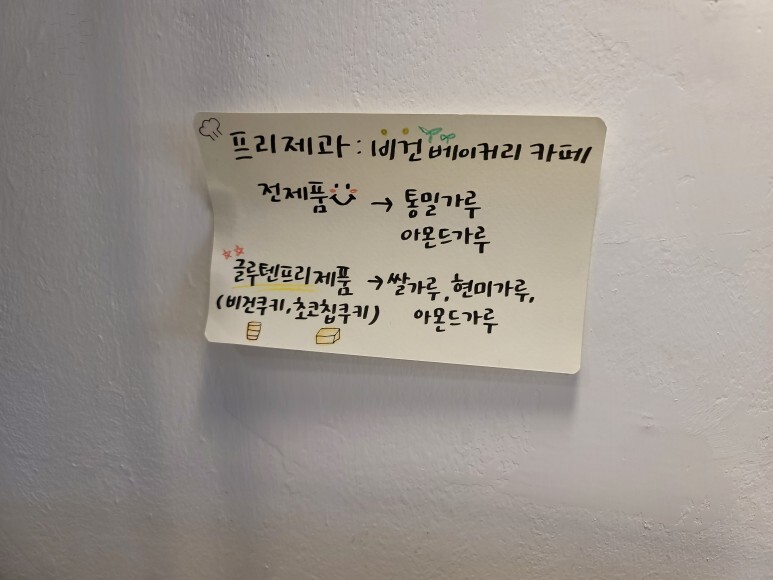 프리제과 : 비건 베이커리 카페
전제품 → 통밀가루
아몬드가루
글루텐프리제품 → 쌀가루, 현미가루,
(비건쿠키, 초코칩쿠키) 아몬드가루